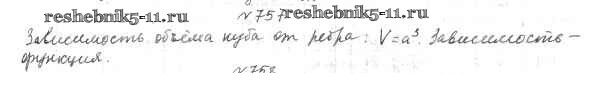 reshebnik5-11.ru №757 reshebnik5-11.ru
Зависимость объёма куба от ребра: V=a³. Зависимость –
функция.
№758